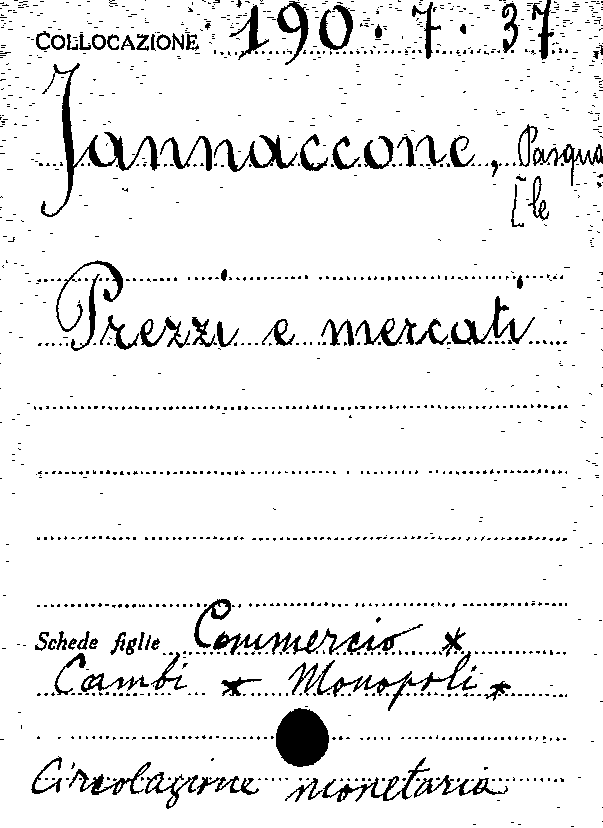 COLLOCAZIONE 190.7.37
Jannaccone, Pasqua
[le
Prezzi e mercati
Schede figlie Commercio *
Cambi * Monopoli *
Circolazione monetaria